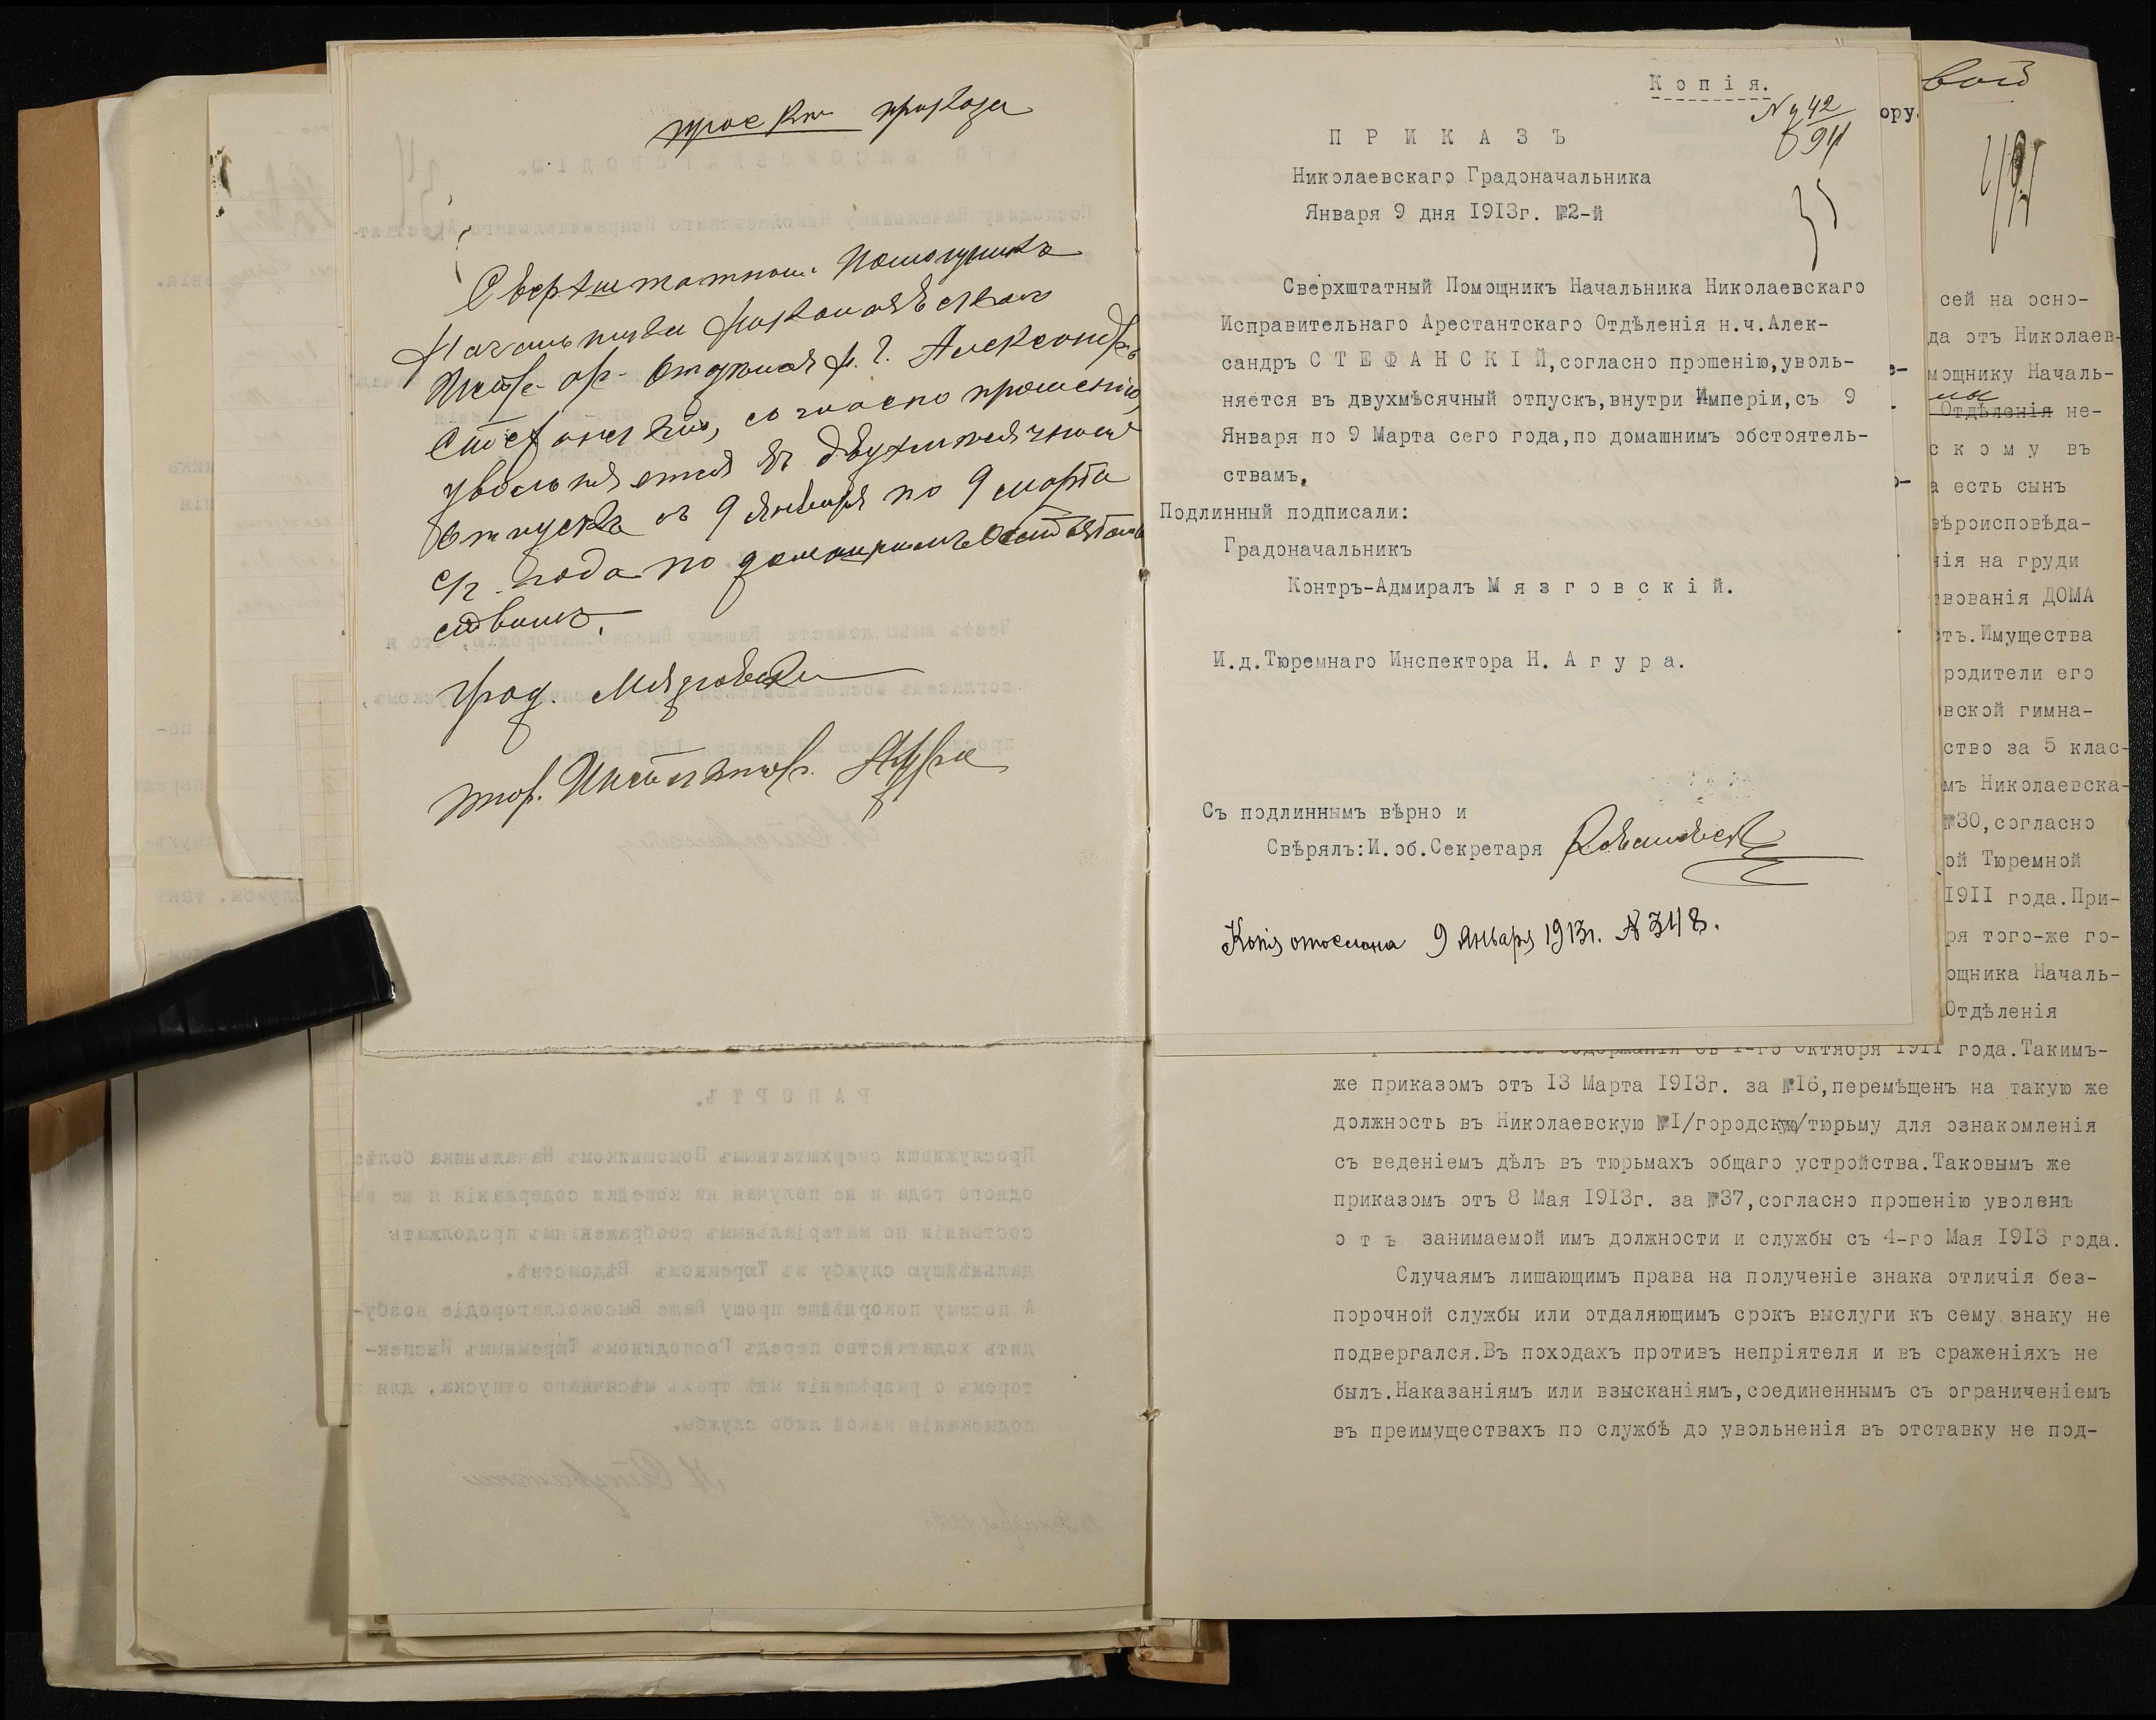 проектъ приказа
Сверхштатный Помощникъ
Начальника Николаевскаго
Испр. ар. Отдѣленія н. ч. Александръ
Стефанскій, согласно прошенію,
увольняется въ двухмѣсячный
отпускъ съ 9 января по 9 марта
с/г. года по домашнимъ обстоятель
ствамъ.
Град. Мязговскій
тюр. Инспекторъ. Агура
Копія.
№ 42
94
35
ПРИКАЗЪ
Николаевскаго Градоначальника
Января 9 дня 1913г. №2-й
Сверхштатный Помощникъ Начальника Николаевскаго
Исправительнаго Арестантскаго Отдѣленія н.ч.Алек-
сандръ СТЕФАНСКІЙ,согласно прошенію,уволь-
няется въ двухмѣсячный отпускъ,внутри Имперіи,съ 9
Января по 9 Марта сего года,по домашнимъ обстоятель-
ствамъ.
Подлинный подписали:
Градоначальникъ
Контръ-Адмиралъ Мязговскій.
И.д.Тюремнаго Инспектора Н. Агура.
Съ подлиннымъ вѣрно и
Свѣрялъ:И.об.Секретаря
Копія отослана 9 Января 1913г. № 348.
ору.
вой
сей на осно-
да отъ Николаев-
мощнику Началь-
Отдѣленія не-
скому въ
а есть сынъ
вѣроисповѣда-
нія на груди
твованія ДОМА
сть.Имущества
родители его
вской гимна-
ство за 5 клас-
мъ Николаевска-
№30,согласно
ой Тюремной
1911 года.При-
ря того-же го-
ощника Началь-
Отдѣленія
содержанія съ 1-го Октября 1911 года.Такимъ-
же приказомъ отъ 13 Марта 1913г. за №16,перемѣщенъ на такую же
должность въ Николаевскую №1/городскую/тюрьму для ознакомленія
съ веденіемъ дѣлъ въ тюрьмахъ общаго устройства.Таковымъ же
приказомъ отъ 8 Мая 1913г. за №37,согласно прошенію уволенъ
отъ занимаемой имъ должности и службы съ 4-го Мая 1913 года.
Случаямъ лишающимъ права на полученіе знака отличія без-
порочной службы или отдаляющимъ срокъ выслуги къ сему знаку не
подвергался.Въ походахъ противъ непріятеля и въ сраженіяхъ не
былъ.Наказаніямъ или взысканіямъ,соединеннымъ съ ограниченіемъ
въ преимуществахъ по службѣ до увольненія въ отставку не под-